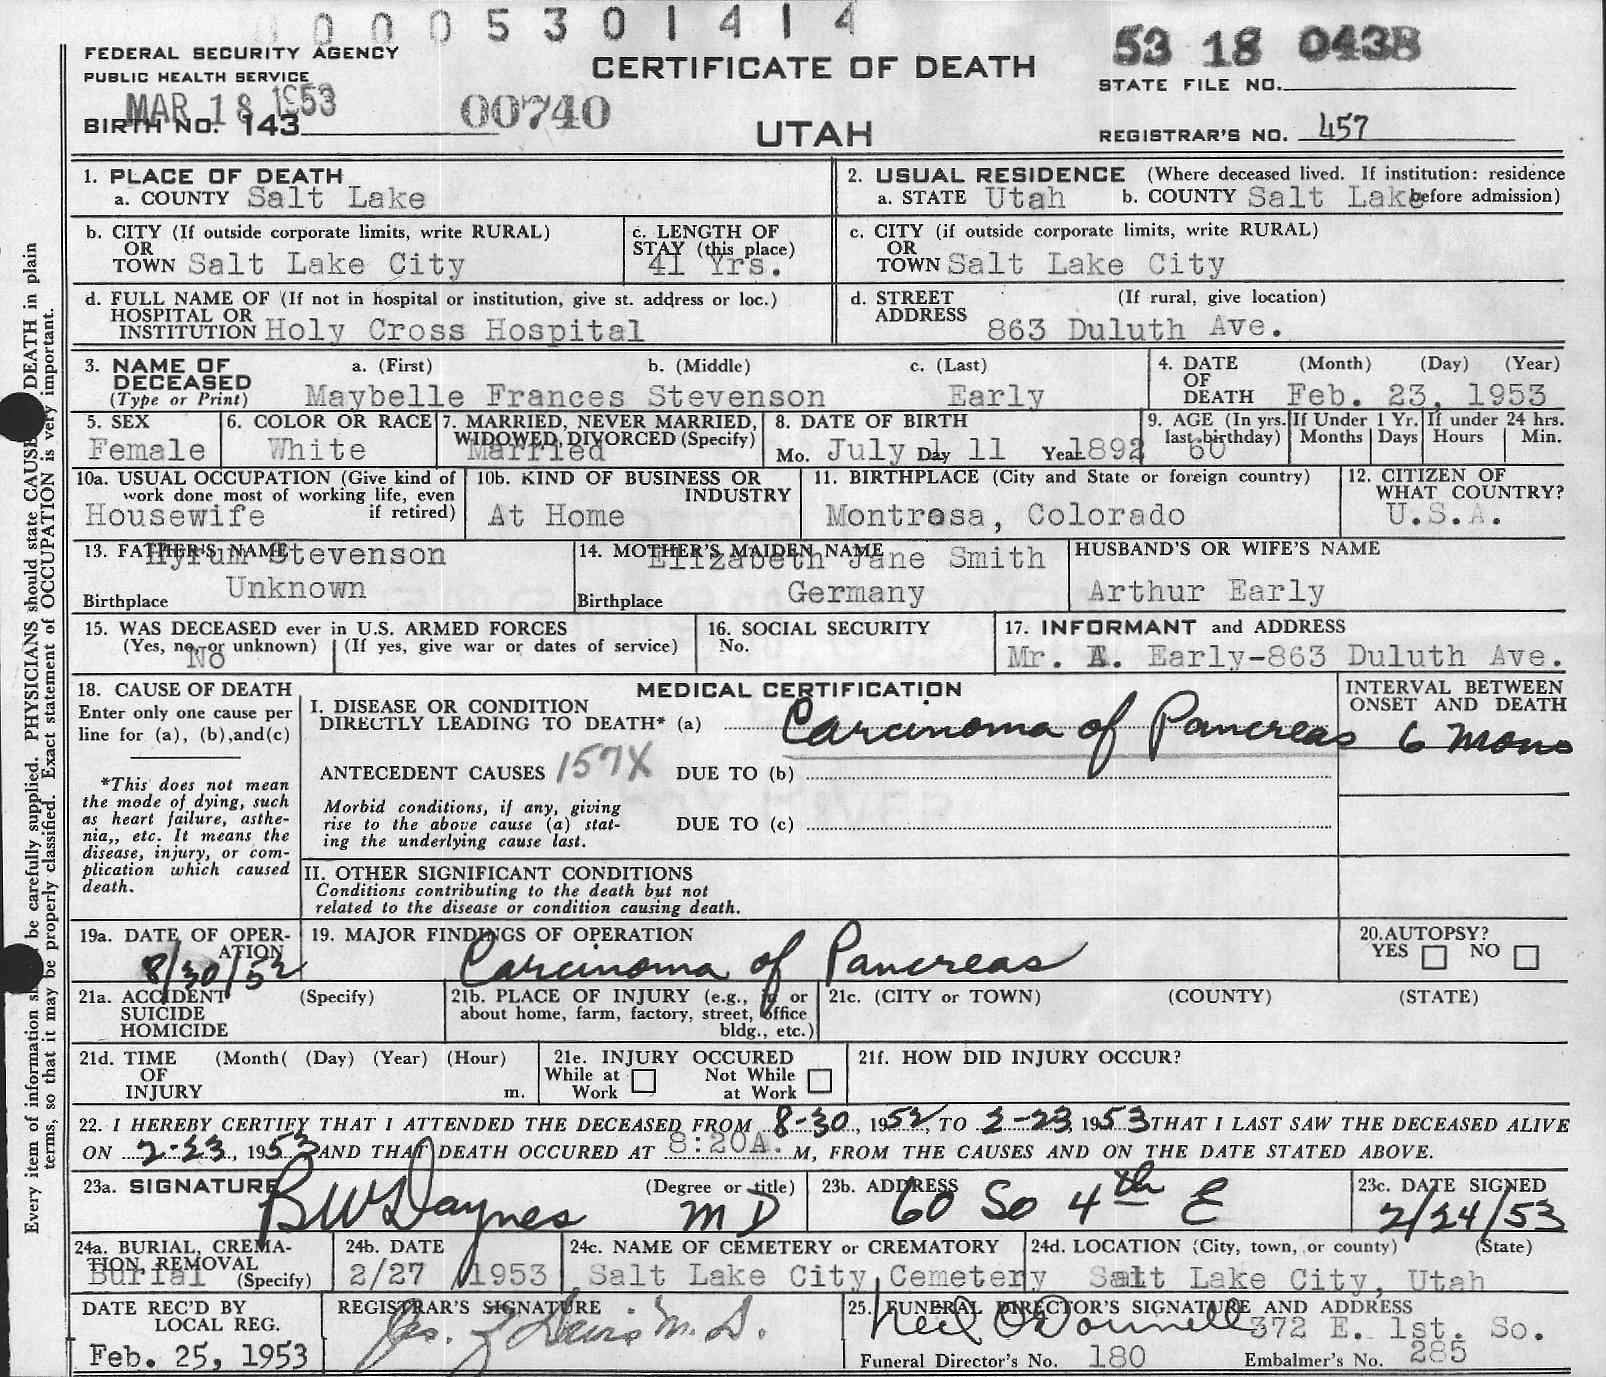 0 0 0 5 3 0 1 4 1 4
FEDERAL SECURITY AGENCY
PUBLIC HEALTH SERVICE
MAR 18 1953
BIRTH NO. 143
00740
CERTIFICATE OF DEATH
UTAH
53 18 0438
STATE FILE NO.
REGISTRAR'S NO. 457
1. PLACE OF DEATH
a. COUNTY Salt Lake
2. USUAL RESIDENCE (Where deceased lived. If institution: residence
a. STATE Utah b. COUNTY Salt Lake before admission)
b. CITY (If outside corporate limits, write RURAL)
OR
TOWN Salt Lake City
c. LENGTH OF
STAY (this place)
41 Yrs.
c. CITY (if outside corporate limits, write RURAL)
OR
TOWN Salt Lake City
d. FULL NAME OF (If not in hospital or institution, give st. address or loc.)
HOSPITAL OR
INSTITUTION Holy Cross Hospital
d. STREET (If rural, give location)
ADDRESS
863 Duluth Ave.
3. NAME OF a. (First) b. (Middle) c. (Last)
DECEASED
(Type or Print) Maybelle Frances Stevenson Early
4. DATE (Month) (Day) (Year)
OF
DEATH Feb. 23, 1953
5. SEX
Female
6. COLOR OR RACE
White
7. MARRIED, NEVER MARRIED,
WIDOWED, DIVORCED (Specify)
Married
8. DATE OF BIRTH
Mo. July Day 11 Year 1892
9. AGE (In yrs.
last birthday)
60
If Under 1 Yr.
Months Days
If under 24 hrs.
Hours Min.
10a. USUAL OCCUPATION (Give kind of
work done most of working life, even
if retired)
Housewife
10b. KIND OF BUSINESS OR
INDUSTRY
At Home
11. BIRTHPLACE (City and State or foreign country)
Montrosa, Colorado
12. CITIZEN OF
WHAT COUNTRY?
U.S.A.
13. FATHER'S NAME
Hyrum Stevenson
Birthplace Unknown
14. MOTHER'S MAIDEN NAME
Elizabeth Jane Smith
Birthplace Germany
HUSBAND'S OR WIFE'S NAME
Arthur Early
15. WAS DECEASED ever in U.S. ARMED FORCES
(Yes, no, or unknown) (If yes, give war or dates of service)
No
16. SOCIAL SECURITY
No.
17. INFORMANT and ADDRESS
Mr. A. Early-863 Duluth Ave.
18. CAUSE OF DEATH
Enter only one cause per
line for (a), (b), and (c)
*This does not mean
the mode of dying, such
as heart failure, asthe-
nia,, etc. It means the
disease, injury, or com-
plication which caused
death.
MEDICAL CERTIFICATION
I. DISEASE OR CONDITION
DIRECTLY LEADING TO DEATH* (a) Carcinoma of Pancreas
INTERVAL BETWEEN
ONSET AND DEATH
6 mons
ANTECEDENT CAUSES 157X DUE TO (b)
Morbid conditions, if any, giving
rise to the above cause (a) stat-
ing the underlying cause last.
DUE TO (c)
II. OTHER SIGNIFICANT CONDITIONS
Conditions contributing to the death but not
related to the disease or condition causing death.
19a. DATE OF OPER-
ATION
8/30/52
19. MAJOR FINDINGS OF OPERATION
Carcinoma of Pancreas
20. AUTOPSY?
YES NO
21a. ACCIDENT (Specify)
SUICIDE
HOMICIDE
21b. PLACE OF INJURY (e.g., in or
about home, farm, factory, street, office
bldg., etc.)
21c. (CITY or TOWN) (COUNTY) (STATE)
21d. TIME (Month( (Day) (Year) (Hour)
OF
INJURY m.
21e. INJURY OCCURED
While at Work Not While at Work
21f. HOW DID INJURY OCCUR?
22. I HEREBY CERTIFY THAT I ATTENDED THE DECEASED FROM 8-30, 1952, TO 2-23, 1953 THAT I LAST SAW THE DECEASED ALIVE
ON 2-23, 1953 AND THAT DEATH OCCURED AT 8:20A. M, FROM THE CAUSES AND ON THE DATE STATED ABOVE.
23a. SIGNATURE (Degree or title)
B W Daynes M D
23b. ADDRESS
60 So 4th E
23c. DATE SIGNED
2/24/53
24a. BURIAL, CREMA-
TION, REMOVAL
(Specify)
Burial
24b. DATE
2/27 1953
24c. NAME OF CEMETERY or CREMATORY
Salt Lake City Cemetery
24d. LOCATION (City, town, or county) (State)
Salt Lake City, Utah
DATE REC'D BY
LOCAL REG.
Feb. 25, 1953
REGISTRAR'S SIGNATURE
Jas. Z Davis M. D.
25. FUNERAL DIRECTOR'S SIGNATURE AND ADDRESS
Neil O'Donnell 372 E. 1st. So.
Funeral Director's No. 180 Embalmer's No. 285
Every item of information be carefully supplied. PHYSICIANS should state CAUSE DEATH in plain
terms, so that it may be properly classified. Exact statement of OCCUPATION is very important.